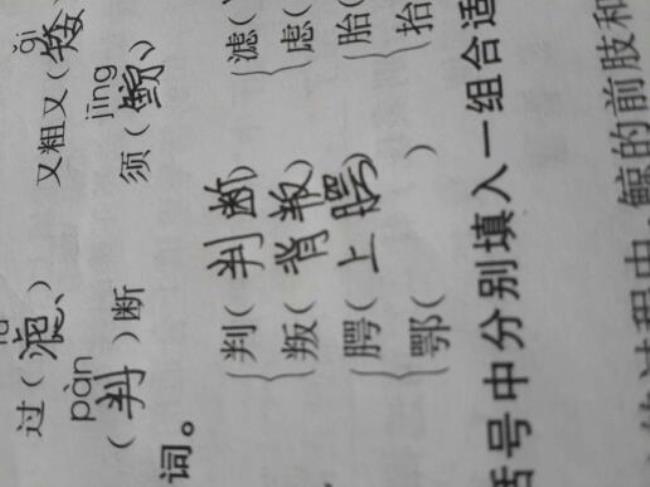 ǎi
过(滤) 又粗又(矮)
pàn jīng
(判)断 须(鲸)
词。
判(判断) 滤(
叛(背叛) 虑(
腭(上腭) 胎(
鄂( ) 抬(
号中分别填入一组合适
过程中,鲸的前肢和